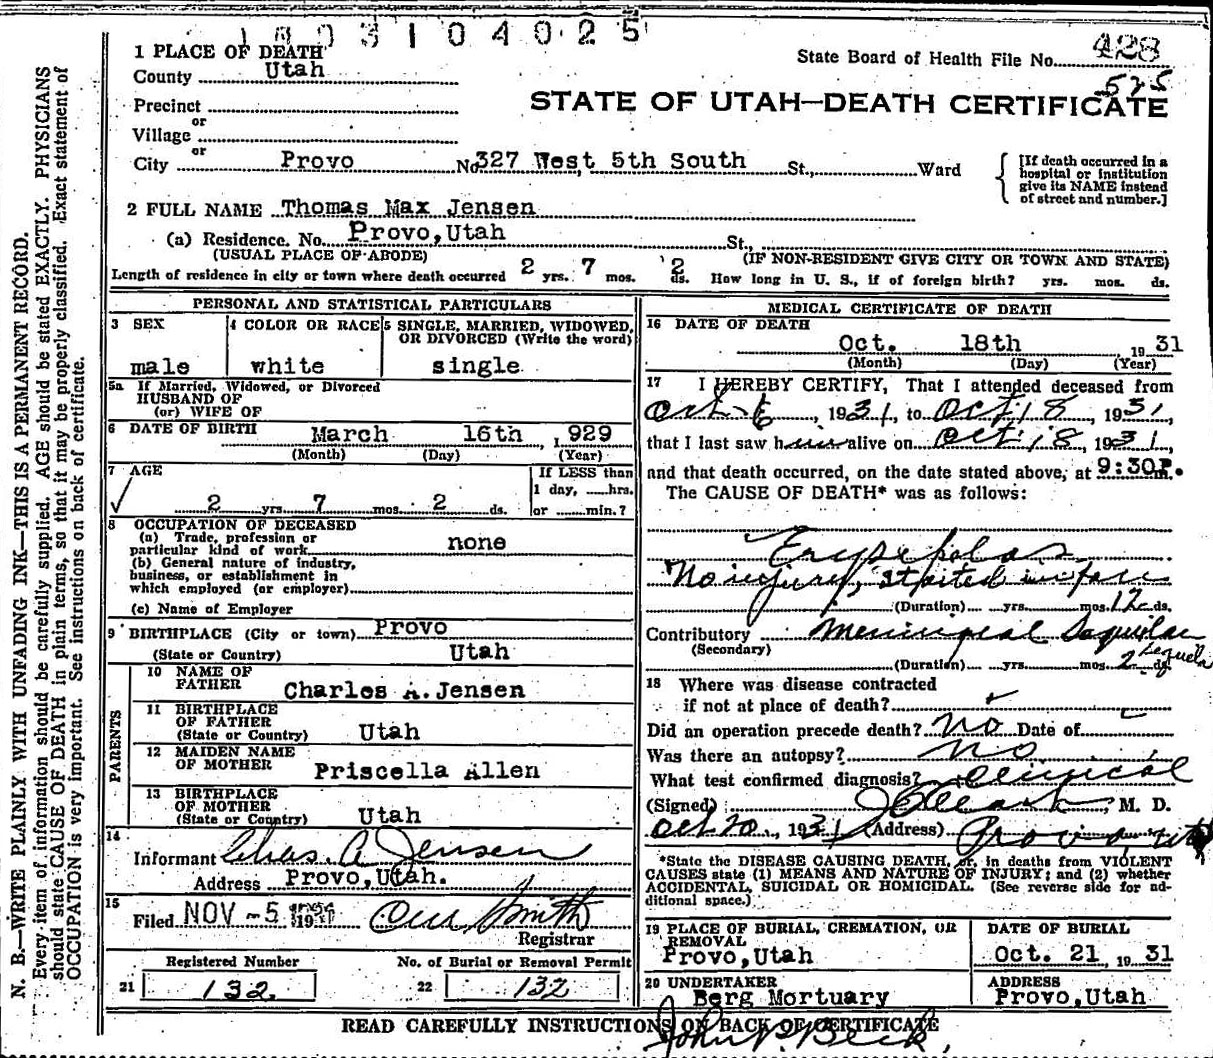 1 0 0 3 1 0 4 0 2 5
1 PLACE OF DEATH
State Board of Health File No. 428
525
County Utah
STATE OF UTAH—DEATH CERTIFICATE
Precinct
or
Village
or
City Provo No. 327 West 5th South St., Ward
[If death occurred in a hospital or institution give its NAME instead of street and number.]
2 FULL NAME Thomas Max Jensen
(a) Residence. No. Provo, Utah St.,
(USUAL PLACE OF ABODE) (IF NON-RESIDENT GIVE CITY OR TOWN AND STATE)
Length of residence in city or town where death occurred 2 yrs. 7 mos. 2 ds. How long in U. S., if of foreign birth? yrs. mos. ds.
PERSONAL AND STATISTICAL PARTICULARS
3 SEX
male
4 COLOR OR RACE
white
5 SINGLE, MARRIED, WIDOWED,
OR DIVORCED (Write the word)
single
5a If Married, Widowed, or Divorced
HUSBAND OF
(or) WIFE OF
6 DATE OF BIRTH March 16th 1929
(Month) (Day) (Year)
7 AGE
2 yrs. 7 mos. 2 ds.
If LESS than
1 day, hrs.
or min.?
8 OCCUPATION OF DECEASED
(a) Trade, profession or
particular kind of work none
(b) General nature of industry,
business, or establishment in
which employed (or employer)
(c) Name of Employer
9 BIRTHPLACE (City or town) Provo
(State or Country) Utah
PARENTS
10 NAME OF
FATHER Charles A. Jensen
11 BIRTHPLACE
OF FATHER
(State or Country) Utah
12 MAIDEN NAME
OF MOTHER Priscella Allen
13 BIRTHPLACE
OF MOTHER
(State or Country) Utah
14
Informant Chas. A Jensen
Address Provo, Utah.
15
Filed NOV -5 1931
Smith
Registrar
Registered Number
21 132.
No. of Burial or Removal Permit
22 132
MEDICAL CERTIFICATE OF DEATH
16 DATE OF DEATH
Oct. 18th 1931
(Month) (Day) (Year)
17 I HEREBY CERTIFY, That I attended deceased from
Oct-6, 1931, to Oct 18, 1931,
that I last saw him alive on Oct 18, 1931,
and that death occurred, on the date stated above, at 9:30P.m.
The CAUSE OF DEATH* was as follows:
Erysipelas
No injury, started in face
(Duration) yrs. mos. 12 ds.
Contributory Meningeal
(Secondary) Sequela
(Duration) yrs. mos. 2 ds.
18 Where was disease contracted
if not at place of death?
Did an operation precede death? No Date of
Was there an autopsy? No
What test confirmed diagnosis? Clinical
(Signed) M. D.
Oct 20, 1931 (Address) Provo, Utah
*State the DISEASE CAUSING DEATH, or, in deaths from VIOLENT
CAUSES state (1) MEANS AND NATURE OF INJURY; and (2) whether
ACCIDENTAL, SUICIDAL OR HOMICIDAL. (See reverse side for ad-
ditional space.)
19 PLACE OF BURIAL, CREMATION, OR
REMOVAL
Provo, Utah
DATE OF BURIAL
Oct. 21, 1931
20 UNDERTAKER
Berg Mortuary
ADDRESS
Provo, Utah
READ CAREFULLY INSTRUCTIONS ON BACK OF CERTIFICATE
John P. Beck,
N. B.—WRITE PLAINLY WITH UNFADING INK—THIS IS A PERMANENT RECORD.
Every item of information should be carefully supplied. AGE should be stated EXACTLY. PHYSICIANS
should state CAUSE OF DEATH in plain terms, so that it may be properly classified. Exact statement of
OCCUPATION is very important. See instructions on back of certificate.